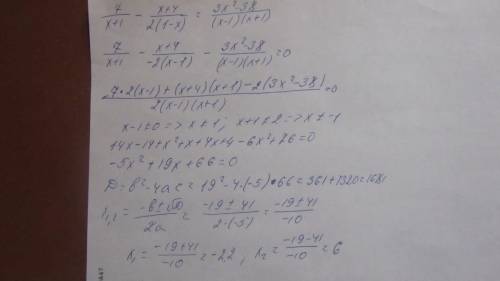 7/(x+1) - (x+4)/(2(1-x)) = (3x²-38)/((x-1)(x+1))
7/(x+1) - (x+4)/(-2(x-1)) - (3x²-38)/((x-1)(x+1)) = 0
(7·2(x-1)+(x+4)(x+1)-2(3x²-38))/(2(x-1)(x+1)) = 0
x-1≠0 => x≠1; x+1≠2 => x≠-1
14x-14+x²+x+4x+4-6x²+76=0
-5x²+19x+66=0
D=b²-4ac=19²-4·(-5)·66=361+1320=1681
x₁,₂ = (-b±√D)/2a = (-19±41)/(2·(-5)) = (-19±41)/-10
x₁=(-19+41)/-10=-2,2; x₂=(-19-41)/-10=6